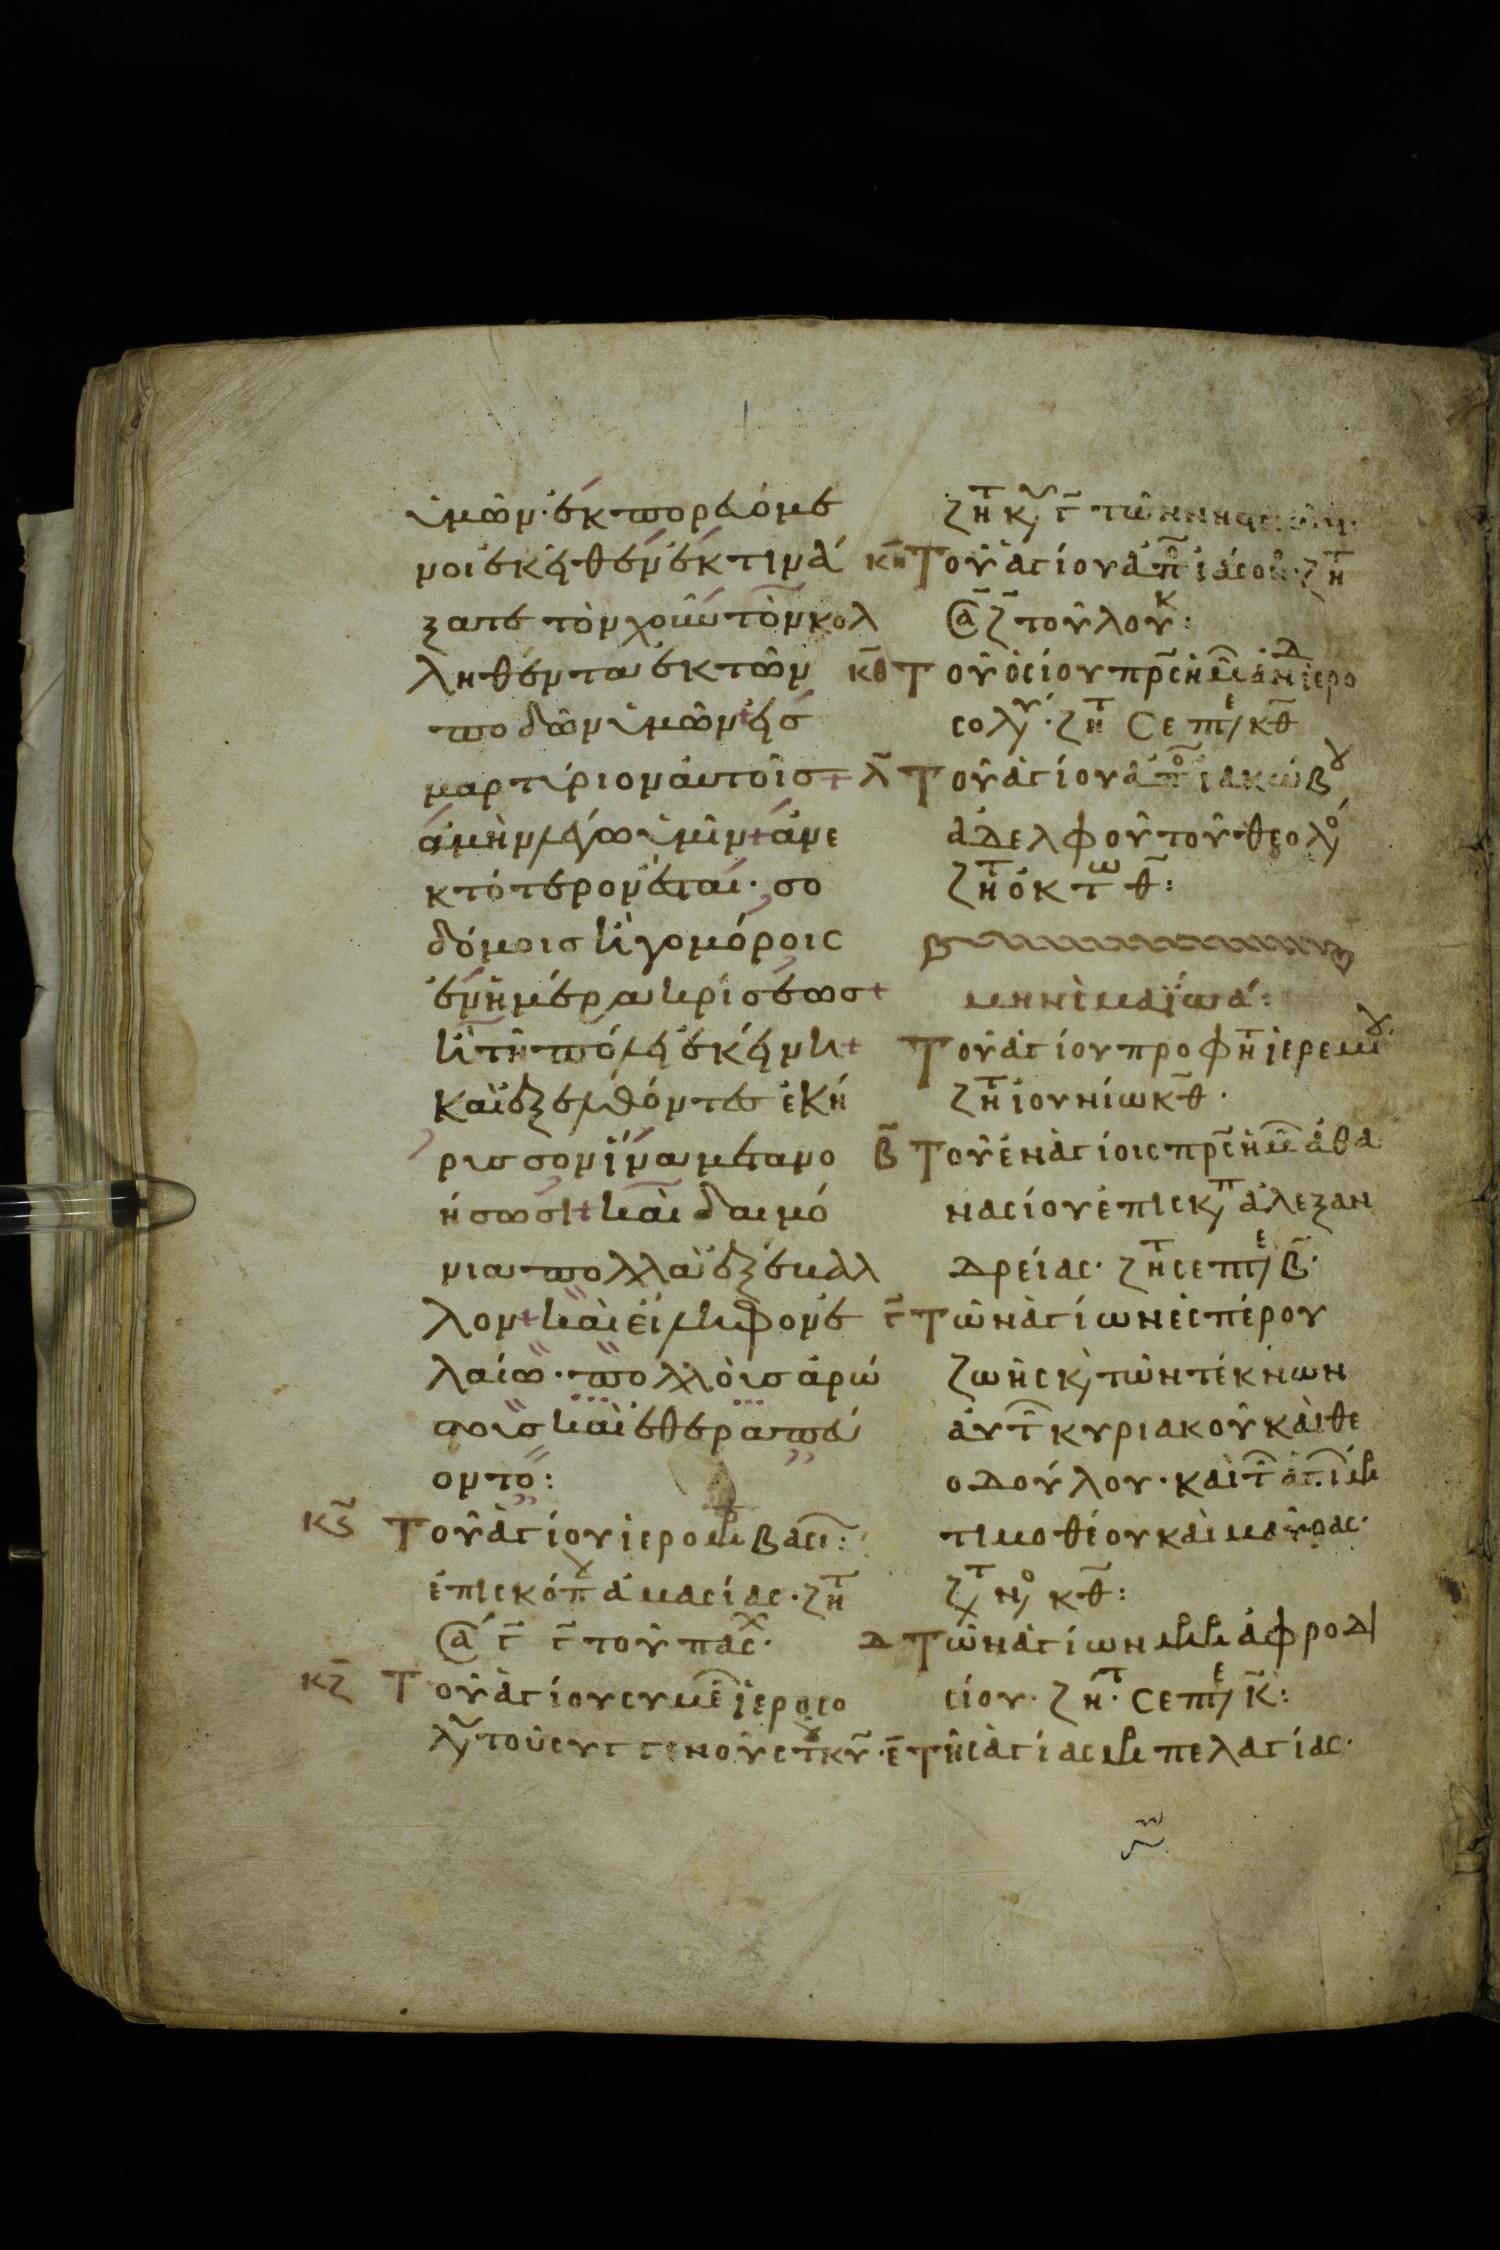 ὑμῶν· ἐκπορευόμε
νοι ἐκεῖθεν ἐκτινά
ξατε τὸν χοῦν τὸν κολ
ληθέντα ἐκ τῶν
ποδῶν ὑμῶν + εἰσ
μαρτύριον ἀυτοῖσ +
ἀμὴν λέγω ὑμῖν + ἀνε
κτότερον ἔσται· σο
δόμοισ καὶ γομόροις
ἐν ἡμέρα κρίσεωσ +
καὶ τῆ πόλει ἐκείνη +
Καὶ ἐξελθόντεσ ἐκή
ρυσσον ἵνα μετανο
ήσωσι + καὶ δαιμό
νια πολλὰ ἐξέβαλ
λον + καὶ εἴληφον ἐ
λαίω· πολλοὺσ ἀρώ
στουσ καὶ ἐθεραπεύ
οντο:
κϛ Τοῦ ἁγίου ἱερομ βασι:
ἐπισκόπ ἀμασίας· ζητ
α γ γ τοῦ πασχ·
κζ Τοῦ ἁγίου συμε ἱεροσο
λυ τοῦ συγγενοῦς τ κυ·
ζητ κυ γ τῶν
κη Τοῦ ἁγίου ἀπ ἰάσον· ζητ
α ζ τοῦ λουκ:
κθ Τοῦ ὁσίου πρς ἡμ ἱερο
σολυ· ζητ Σεπτε κθ
λ Τοῦ ἁγίου ἀπο ἰακώβου
ἀδελφοῦ τοῦ θεολο
ζητ ὀκτω θ:
μηνὶ μαΐω α:
Τοῦ ἁγίου προφητ ἱερεμιου
ζητ ἰουνίω κθ·
β Τοῦ ἐν ἁγίοις πρς ἡμ ἀθα
νασίου ἐπισκπ ἀλεξαν
δρείας· ζητ σεπτε β·
γ Τῶν ἁγίων ἑσπέρου
ζωῆς κ τῶν τέκνων
ἀυτ κυριακοῦ καὶ θε
οδούλου· καὶ τ ἁγι μ
τιμοθέου καὶ μαύρας·
ζτ νο κθ:
δ Τῶν ἁγίων μμ ἀφροδι
σίου· ζητ· Σεπτε κ:
ε Τῆς ἁγίας μ πελαγίας·